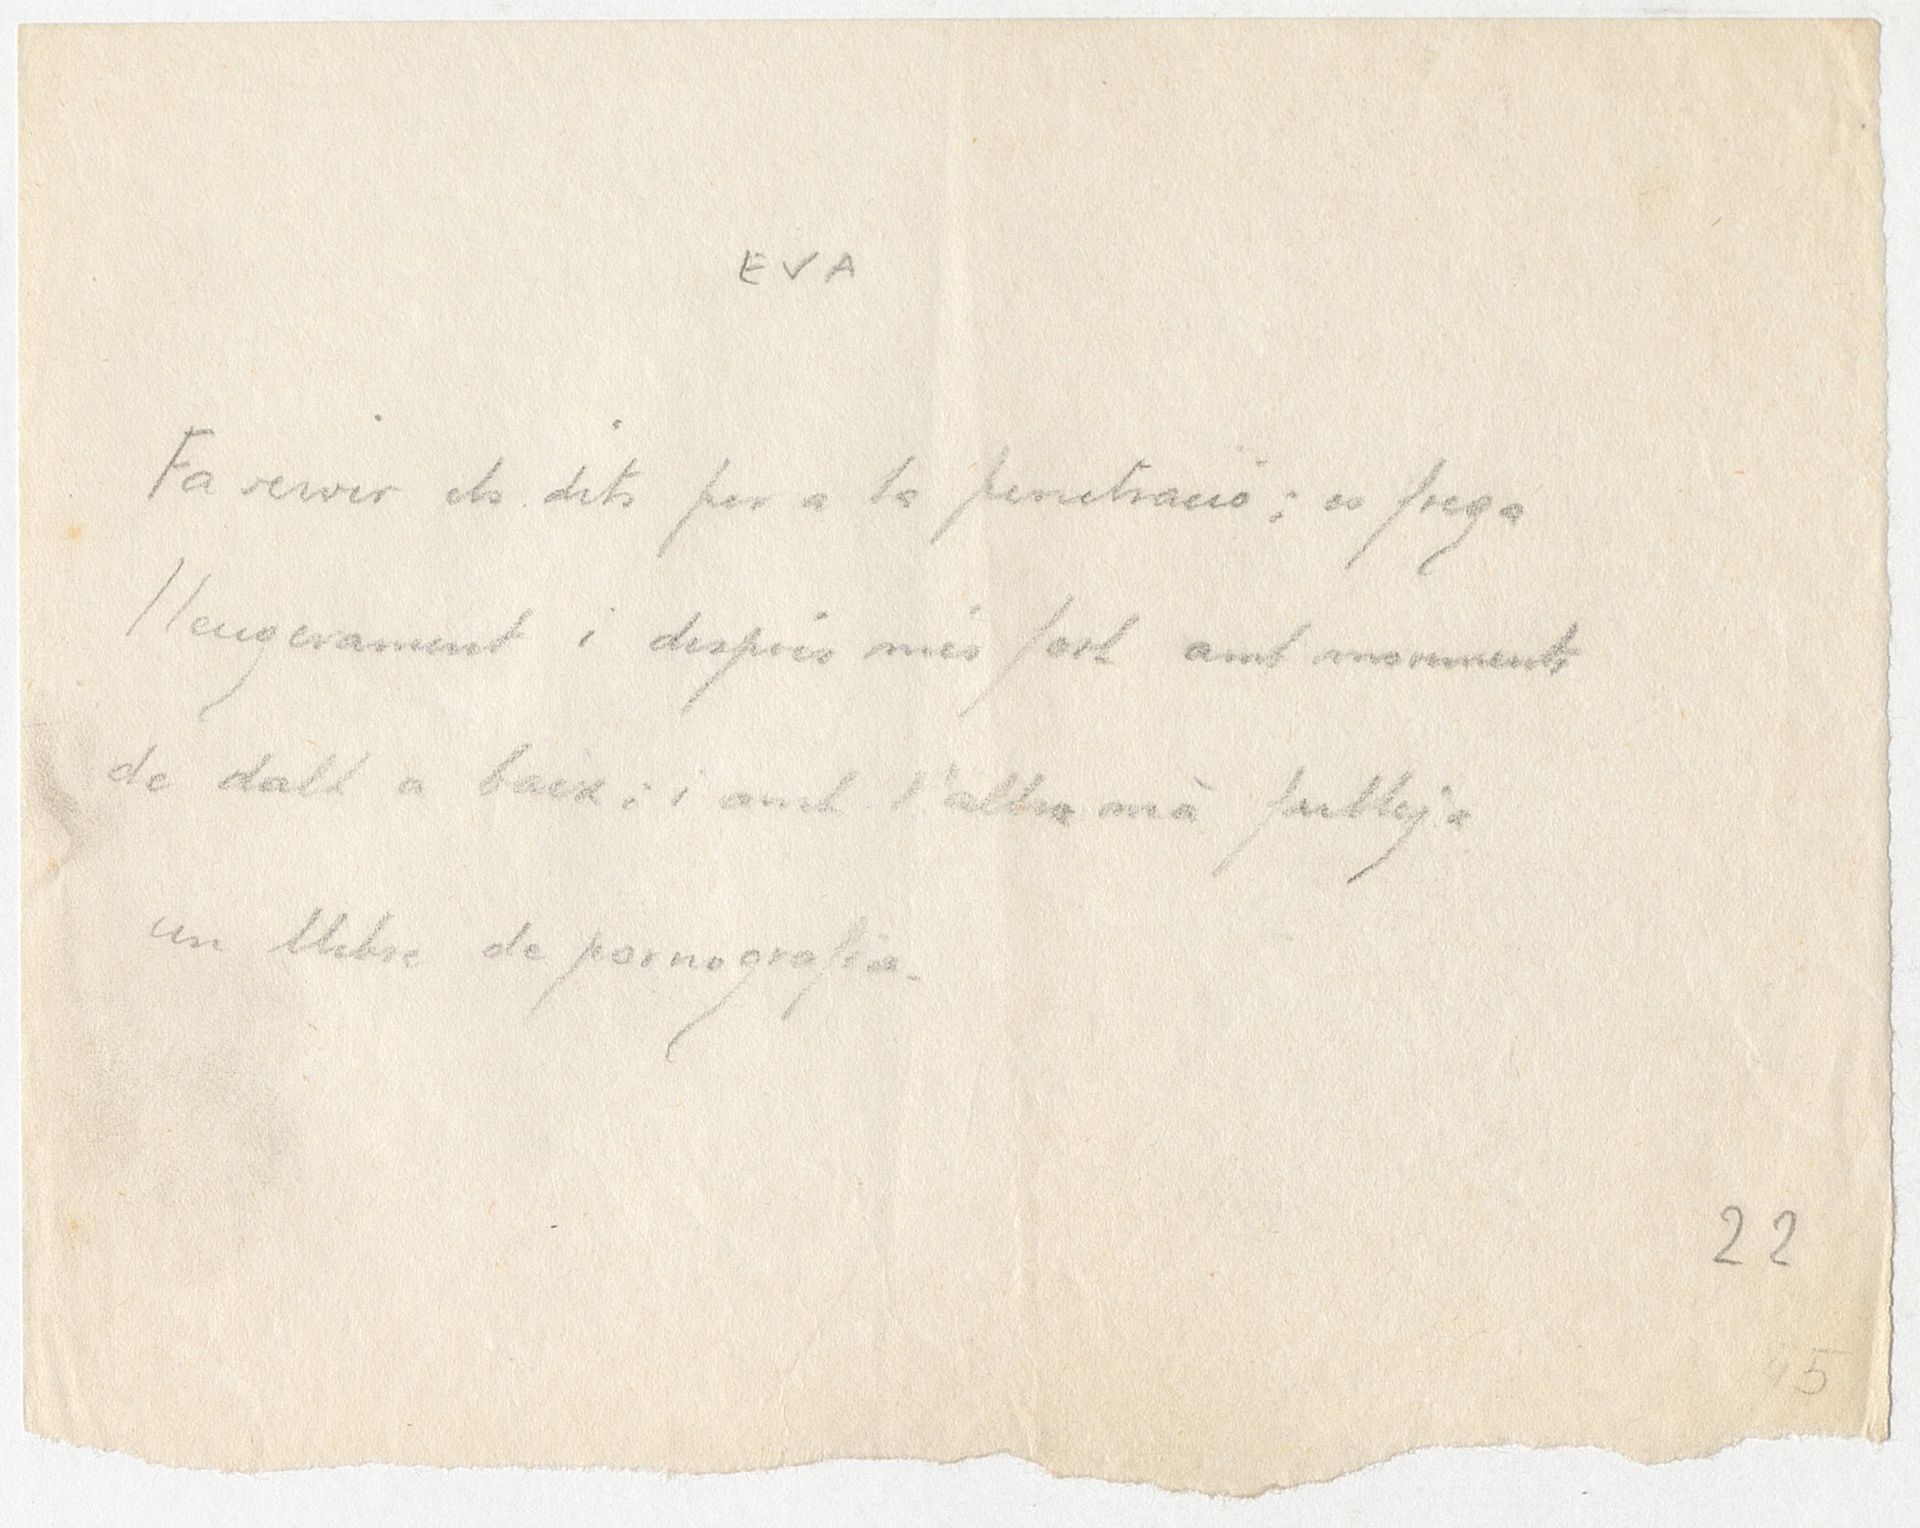 EVA
Fa servir els dits per a la penetració; es frega
lleugerament i després més fort amb moviments
de dalt a baix; i amb l'altra mà fulleja
un llibre de pornografia.
22
45